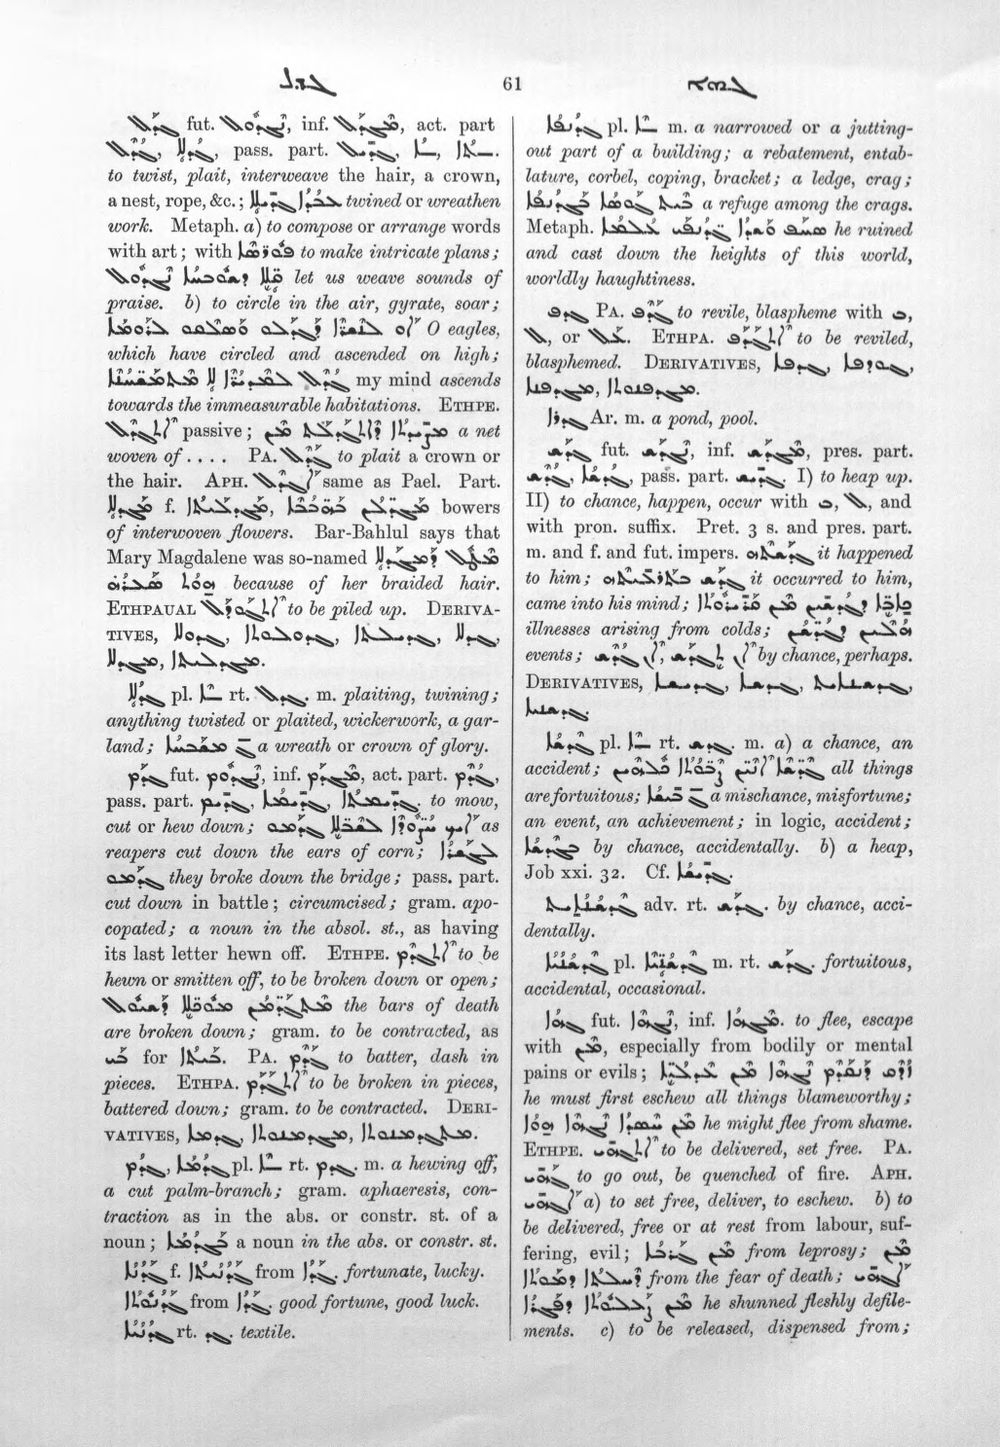 ܓܕܠ 61 ܓܗܐ
ܓܕܠ fut. ܢܓܕܘܠ, inf. ܡܓܕܠ, act. part
ܓܕܠ, ܓܕܠܐ, pass. part. ܓܕܝܠ, ܠܐ, ܠܬܐ.
to twist, plait, interweave the hair, a crown,
a nest, rope, &c.; ܥܒܕܐ ܓܕܝܠܐ twined or wreathen
work. Metaph. a) to compose or arrange words
with art; with ܦܘܪܣܐ to make intricate plans;
ܩܠܐ ܕܬܫܒܘܚܬܐ ܢܓܕܘܠ let us weave sounds of
praise. b) to circle in the air, gyrate, soar;
ܐܘ ܢܫܪܐ ܕܓܕܠܘ ܘܣܠܩܘ ܠܪܘܡܐ O eagles,
which have circled and ascended on high;
ܓܕܠ my mind ascends
towards the immeasurable habitations. Ethpe.
ܐܬܓܕܠ passive; ܡܨܝܕܬܐ ܕܐܬܓܕܠܬ ܡܢ a net
woven of . . . . Pa. ܓܕܠ to plait a crown or
the hair. Aph. ܐܓܕܠ same as Pael. Part.
ܡܓܕܠܐ f. ܡܓܕܠܬܐ, bowers
of interwoven flowers. Bar-Bahlul says that
Mary Magdalene was so-named ܡܛܠ ܕܡܓܕܠܐ
ܗܘܐ ܣܥܪܗ because of her braided hair.
Ethpaual ܐܬܓܘܕܠ to be piled up. Deriva-
tives, ܓܕܘܠܐ, ܓܕܘܠܬܐ, ܓܕܝܠܬܐ, ܓܕܠܐ,
ܡܓܕܠܐ, ܡܓܕܠܝܬܐ.
ܓܕܠܐ pl. ܠܐ rt. ܓܕܠ. m. plaiting, twining;
anything twisted or plaited, wickerwork, a gar-
land; ܓ ܡܫܒܚܐ a wreath or crown of glory.
ܓܕܡ fut. ܢܓܕܘܡ, inf. ܡܓܕܡ, act. part. ܓܕܡ,
pass. part. ܓܕܝܡ, ܓܕܝܡܐ, ܓܕܝܡܬܐ. to mow,
cut or hew down; ܐܝܟ ܚܨܘܕܐ ܠܫܒܠܐ ܓܕܡܘ as
reapers cut down the ears of corn; ܠܓܫܪܐ
ܓܕܡܘ they broke down the bridge; pass. part.
cut down in battle; circumcised; gram. apo-
copated; a noun in the absol. st., as having
its last letter hewn off. Ethpe. ܐܬܓܕܡ to be
hewn or smitten off, to be broken down or open;
ܡܬܓܕܡܝܢ ܡܘܟܠܐ ܕܫܝܘܠ the bars of death
are broken down; gram. to be contracted, as
for ܒܝܬܐ. Pa. ܓܕܡ to batter, dash in
pieces. Ethpa. ܐܬܓܕܡ to be broken in pieces,
battered down; gram. to be contracted. Deri-
vatives, ܓܕܡܐ, ܡܓܕܡܢܘܬܐ, ܡܬܓܕܡܢܘܬܐ.
ܓܕܡ, ܓܕܡܐ pl. ܡܐ rt. ܓܕܡ. m. a hewing off,
a cut palm-branch; gram. aphaeresis, con-
traction as in the abs. or constr. st. of a
noun; ܒܓܕܡܐ a noun in the abs. or constr. st.
ܓܕܢܐ f. ܓܕܢܬܐ from ܓܕܐ. fortunate, lucky.
ܓܕܢܘܬܐ from ܓܕܐ. good fortune, good luck.
ܓܕܢܝܐ rt. ܓܕ. textile.
ܓܕܢܦܐ pl. ܦܐ m. a narrowed or a jutting-
out part of a building; a rebatement, entab-
lature, corbel, coping, bracket; a ledge, crag;
ܒܝܬ ܓܘܣܐ ܒܓܕܢܦܐ a refuge among the crags.
Metaph. ܣܚܦ ܘܫܕܐ ܓܕܢܦܝ ܥܠܡܐ he ruined
and cast down the heights of this world,
worldly haughtiness.
ܓܕܦ Pa. ܓܕܦ to revile, blaspheme with ܒ,
ܠ, or ܥܠ. Ethpa. ܐܬܓܕܦ to be reviled,
blasphemed. Derivatives, ܓܕܦܐ, ܓܘܕܦܐ,
ܡܓܕܦܢܐ, ܡܓܕܦܢܘܬܐ.
ܓܕܪܐ Ar. m. a pond, pool.
ܓܕܫ fut. ܢܓܕܫ, inf. ܡܓܕܫ, pres. part.
ܓܕܫ, ܓܕܫܐ, pass. part. ܓܕܝܫ. I) to heap up.
II) to chance, happen, occur with ܒ, ܠ, and
with pron. suffix. Pret. 3 s. and pres. part.
m. and f. and fut. impers. ܓܕܫܬܗ it happened
to him; ܓܕܫ ܒܬܪܥܝܬܗ it occurred to him,
came into his mind; ܟܐܒܐ ܕܓܕܫܝܢ ܡܢ ܩܪܝܪܘܬܐ
illnesses arising from colds; ܗܠܝܢ ܕܓܕܫܢ
events; ܐܢ ܓܕܫ, ܐܢ ܓܕܫ by chance, perhaps.
Derivatives, ܓܕܝܫܐ, ܓܕܫܐ, ܓܕܫܢܐܝܬ,
ܓܕܫܢܝܐ.
ܓܕܫܐ pl. ܫܐ rt. ܓܕܫ. m. a) a chance, an
accident; ܓܕܫܐ ܐܢܝܢ all things
are fortuitous; ܓ ܒܝܫܐ a mischance, misfortune;
an event, an achievement; in logic, accident;
ܒܓܕܫܐ by chance, accidentally. b) a heap,
Job xxi. 32. Cf. ܓܕܝܫܐ.
ܓܕܫܢܐܝܬ adv. rt. ܓܕܫ. by chance, acci-
dentally.
ܓܕܫܢܝܐ pl. ܓܕܫܢܝܐ m. rt. ܓܕܫ. fortuitous,
accidental, occasional.
ܓܗܐ fut. ܢܓܗܐ, inf. ܡܓܗܐ. to flee, escape
with ܡܢ, especially from bodily or mental
pains or evils; ܙܕܩ ܕܢܩܕܡ ܢܓܗܐ ܡܢ
he must first eschew all things blameworthy;
ܗܘܐ ܢܓܗܐ ܡܢ he might flee from shame.
Ethpe. ܐܬܓܗܝ to be delivered, set free. Pa.
ܓܗܝ to go out, be quenched of fire. Aph.
ܐܓܗܝ a) to set free, deliver, to eschew. b) to
be delivered, free or at rest from labour, suf-
fering, evil; ܡܢ ܓܪܒܐ from leprosy; ܡܢ
ܕܚܠܬܐ ܕܡܘܬܐ from the fear of death; ܐܓܗܝ
ܡܢ ܕܦܓܪܐ he shunned fleshly defile-
ments. c) to be released, dispensed from;